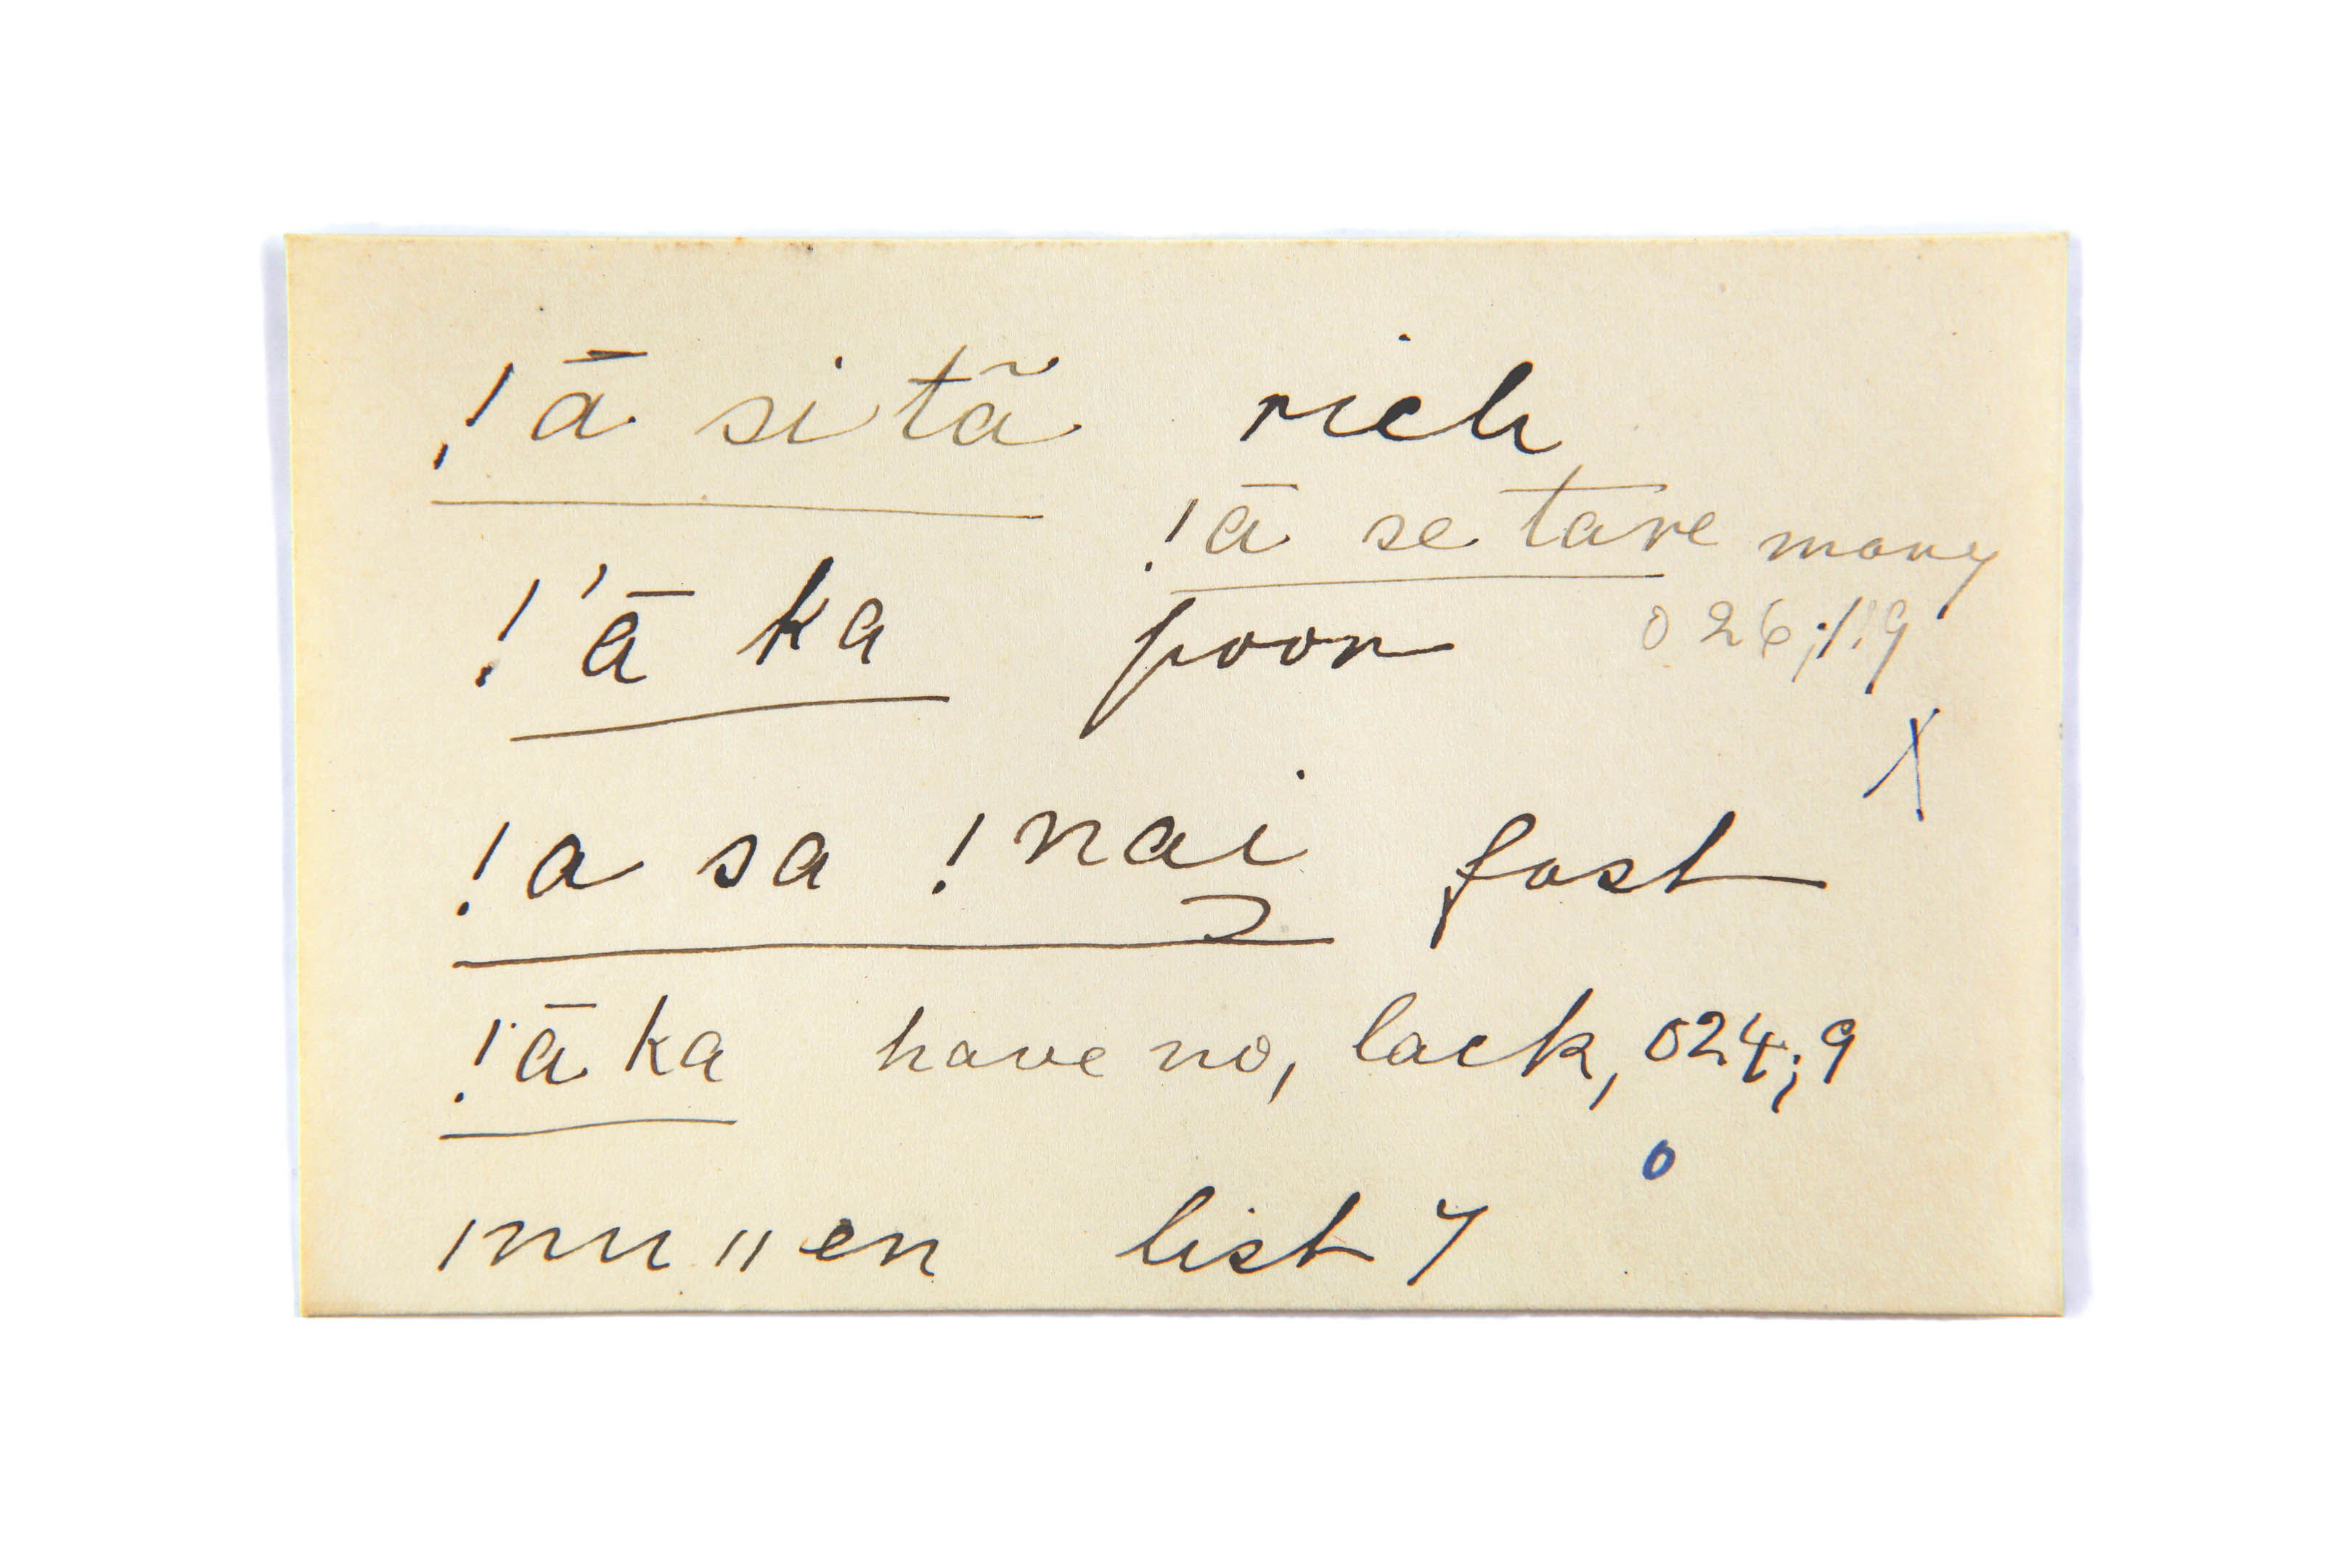 !ā sitã rich
!ā se tare many
!'ā ka poor 026;119
X
!a sa !nai fast
!ā ka have no, lack, 024;9
o
ǀnu ǁen list 7